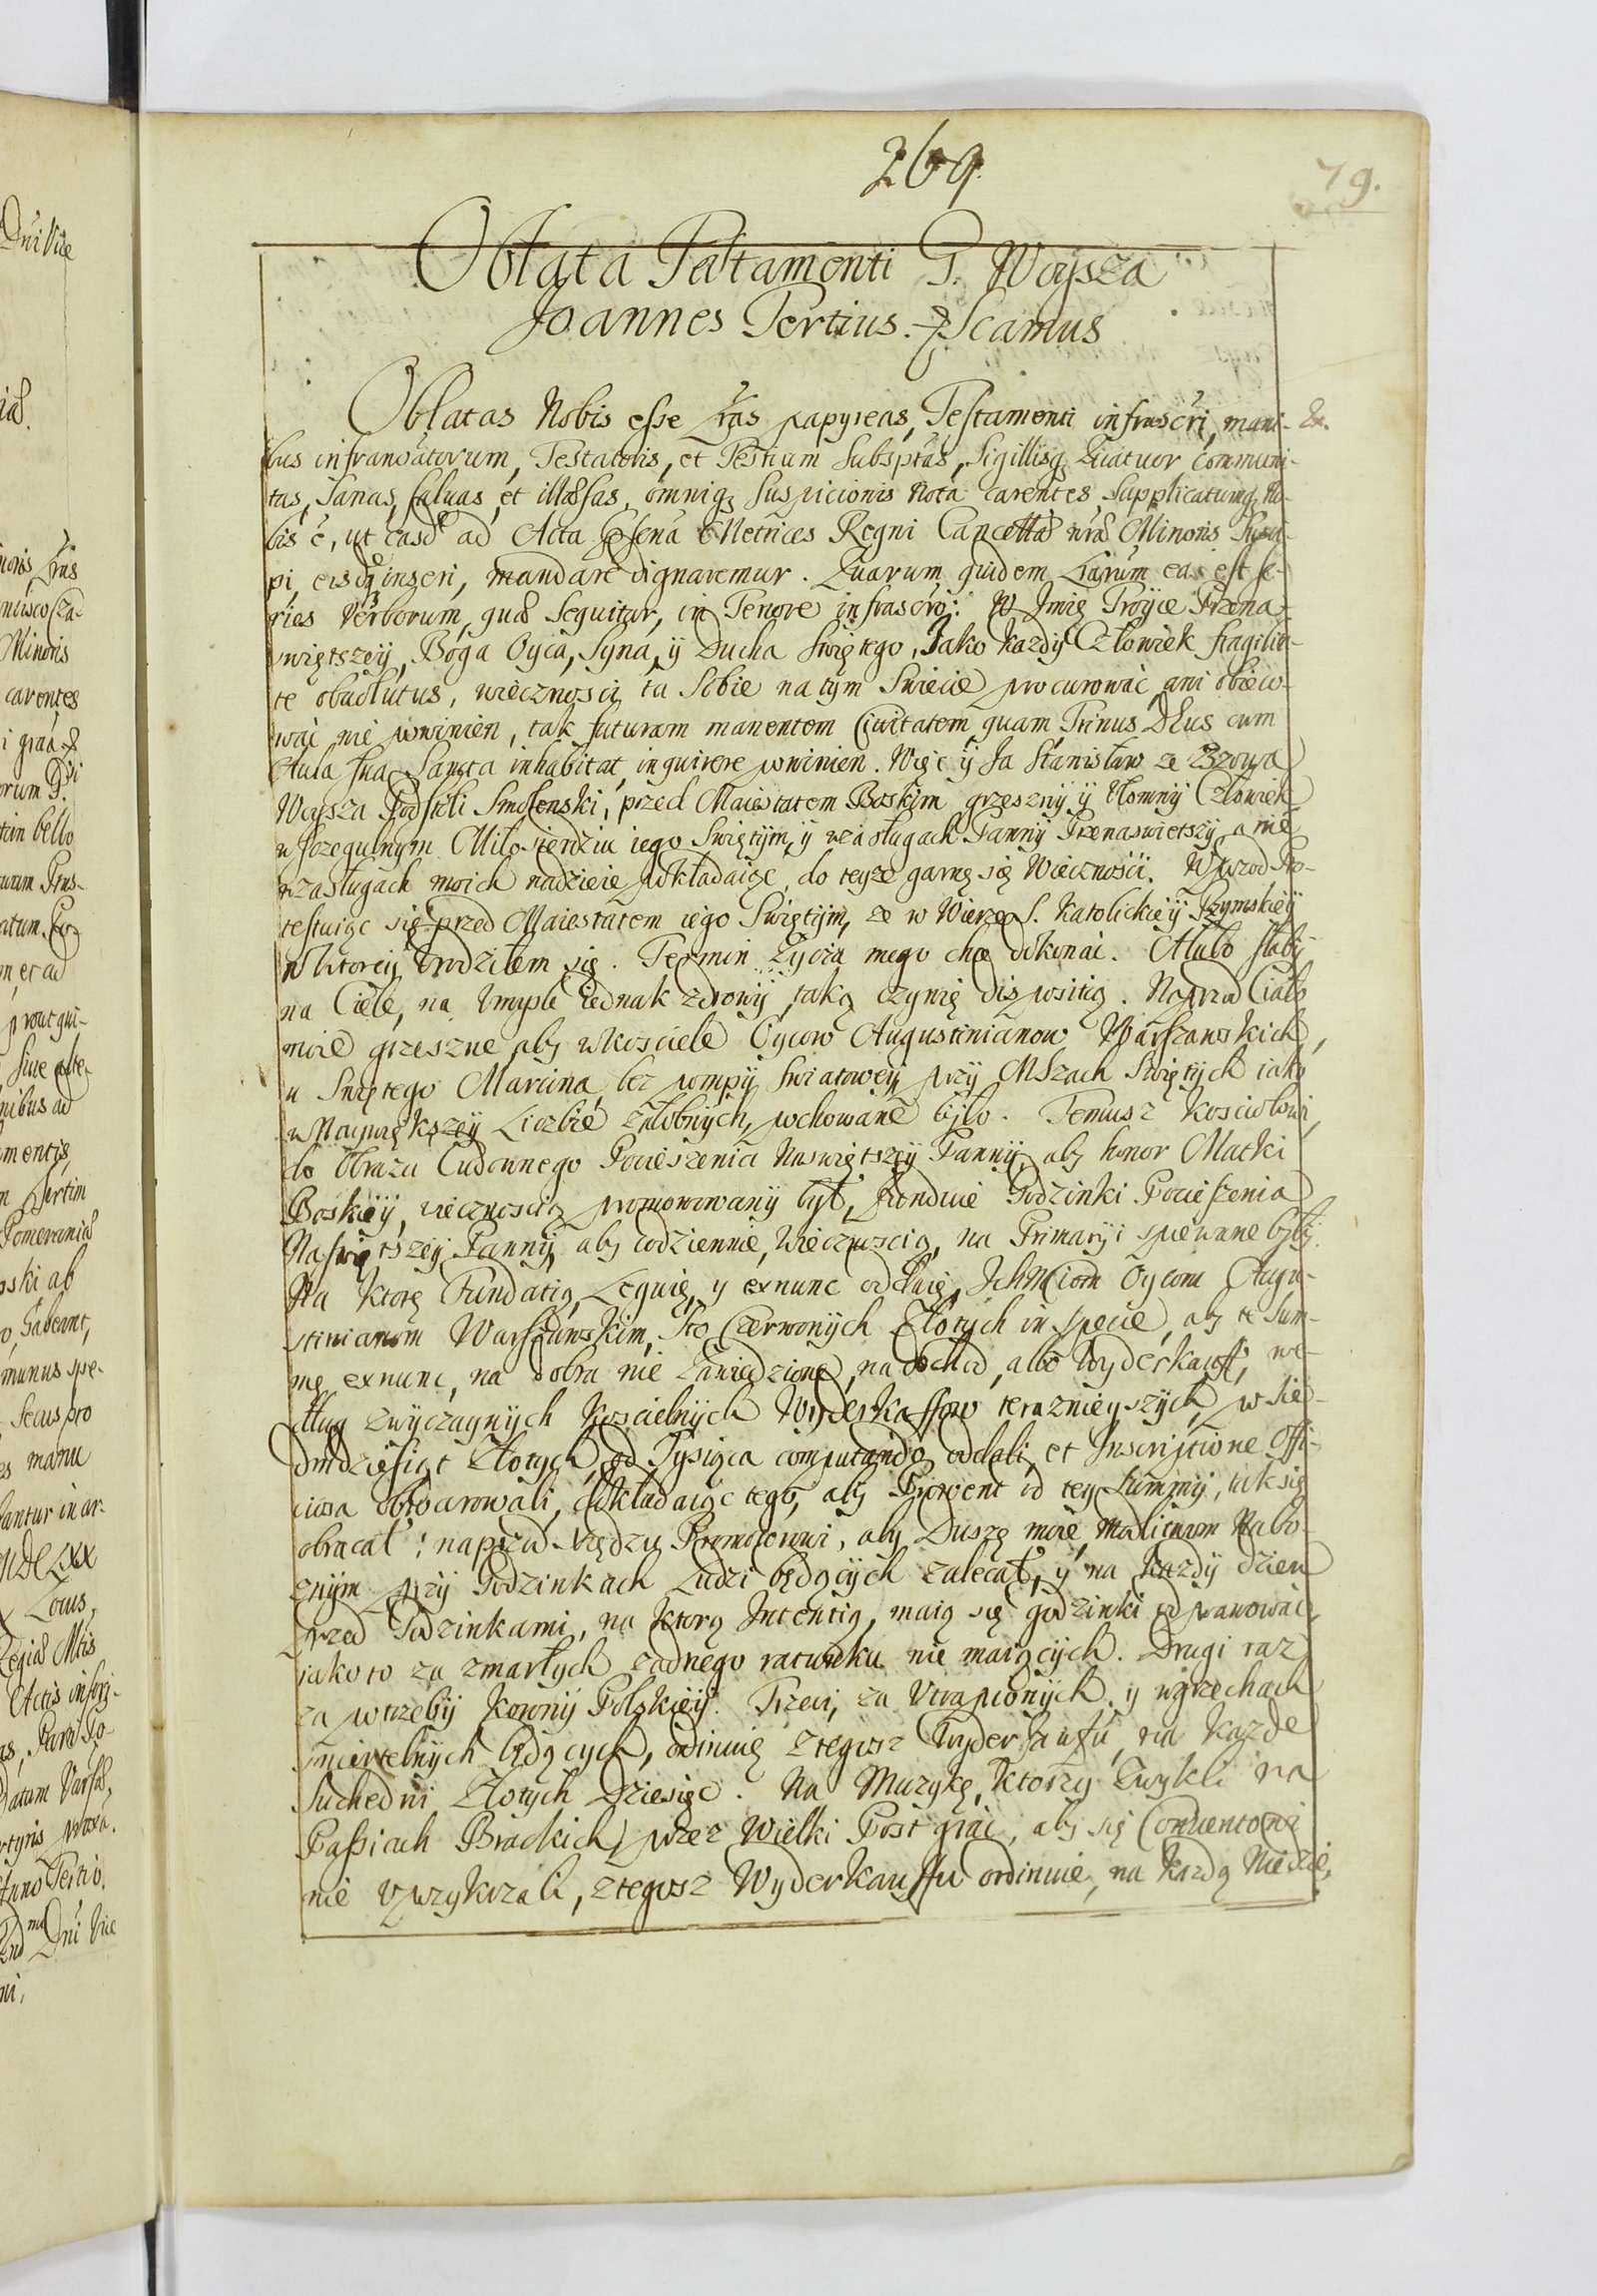 269.
79.
Oblata Testamenti G. Woysza
Joannes Tertius. Scamus
Oblatas Nobis esse Lras papyreas, Testamenti infrascri, mani- &.
bus infranoatorum, Testatoris, et Testium Subsptas, Sigillisq Quatuor communi-
tas, Sanas, saluas, et illæsas, omniq suspicionis nota carentes, Supplicatumq No-
bis e, ut easd ad Acta Metrices Regni Cancellæ nræ Minoris
pi, eisq inseri, mandare dignaremur. Quarum quidem Lrarum ea est se-
ries Verborum, quæ Sequitur, in Tenore infrascro: W Jmię Troyce Przena-
swiętszey, Boga Oyca, Syna, y Ducha Swiętego, Jako Kazdy Człowiek fragilita-
te obuolutus, wiecznosci tu Sobie na tym Swiecie procurować, ani obieco-
wać nie powinien, tak futuram manentem Ciuitatem, quam Trinus Deus cum
Aula sua Sancta inhabitat, inquirere powinien. Więc y Ja Stanisław ze Bzowa
Woysza Podstoli Smolenski, przed Maiestatem Boskim grzeszny y Ułomny Człowiek
w szczegulnym Miłosierdziu iego Swiętym, y wzasługach Panny Przenaswietszy, a nie
wzasługach moich nadzieie pokładaiąc, do teyze garnę się Wiecznosci. Wprzod Pro-
testuiąc się przed Maiestatem iego Swiętym, ze w Wierze S. Katolickiey Rzymskiey
w ktorey Urodziłem się. Termin Zycia mego chcę dokonać. A lubo słaby
na Ciele, na Umysle iednak zdrowy, taką czynię dispositią. Naprzod Ciało
moie grzeszne aby w kosciele Oycow Augustinianow Warszawskich,
u Swiętego Marcina, bez pompy swiatowey, przy MSzach Swiętych iako
w Naywiększey Liczbie załobnych, pochowane było. Temusz Kosciołowi,
do Obrazu Cudownego Pocieszenia Naswiętszey Panny, aby honor Matki
Boskiey, wiecznoscią promowowany był, funduie Godzinki Pocieszenia
Naswiętszey Panny, aby codziennie, Wiecznoscią, na Prymaryi spiewane były.
Na ktorę Fundatią, Leguię, y exnunc oddaię, Jchmciom Oycom Augu-
stinianom Warszawskim, Sto Czerwonych Złotych in specie, aby te Sum-
mę exnunc, na dobra nie Zawiedzione, na dochod, albo Wyderkauff, we-
dług zwyczaynych Koscielnych Wyderkaffow teraznieyszych, po Sie-
dmdziesiąt Złotych, od Tysiąca computando, oddali, et Inscriptione Offi-
ciosa obwarowali, dokładaiąc tego, aby Prowent od tey Summy, tak się
obracał: naprzod Xiędzu Promotorowi, aby Duszę moię, Modlitwom Nabo-
znym przy Godzinkach Ludzi będących zalecał, y na Kazdy dzien
przed Godzinkami, na ktorą Jntentią, maią się godzinki odprawować,
iako to za zmarłych zadnego ratunku nie maiących. Drugi raz
za potrzeby Korony Polskiey. Trzeci, za Utrapionych, y wgrzechach
smiertelnych będących, ordinuię z tegosz Wyderkauffu, na Kazde
Suchedni Złotych Dziesięc. Na Muzykę, ktorzy zwykli na
Passiach Brackich, przez Wielki Post grać, aby się Conuentowi
nie Uprzykrzali, z tegosz Wyderkauffu ordinuie, na Kazdą Niedzie,